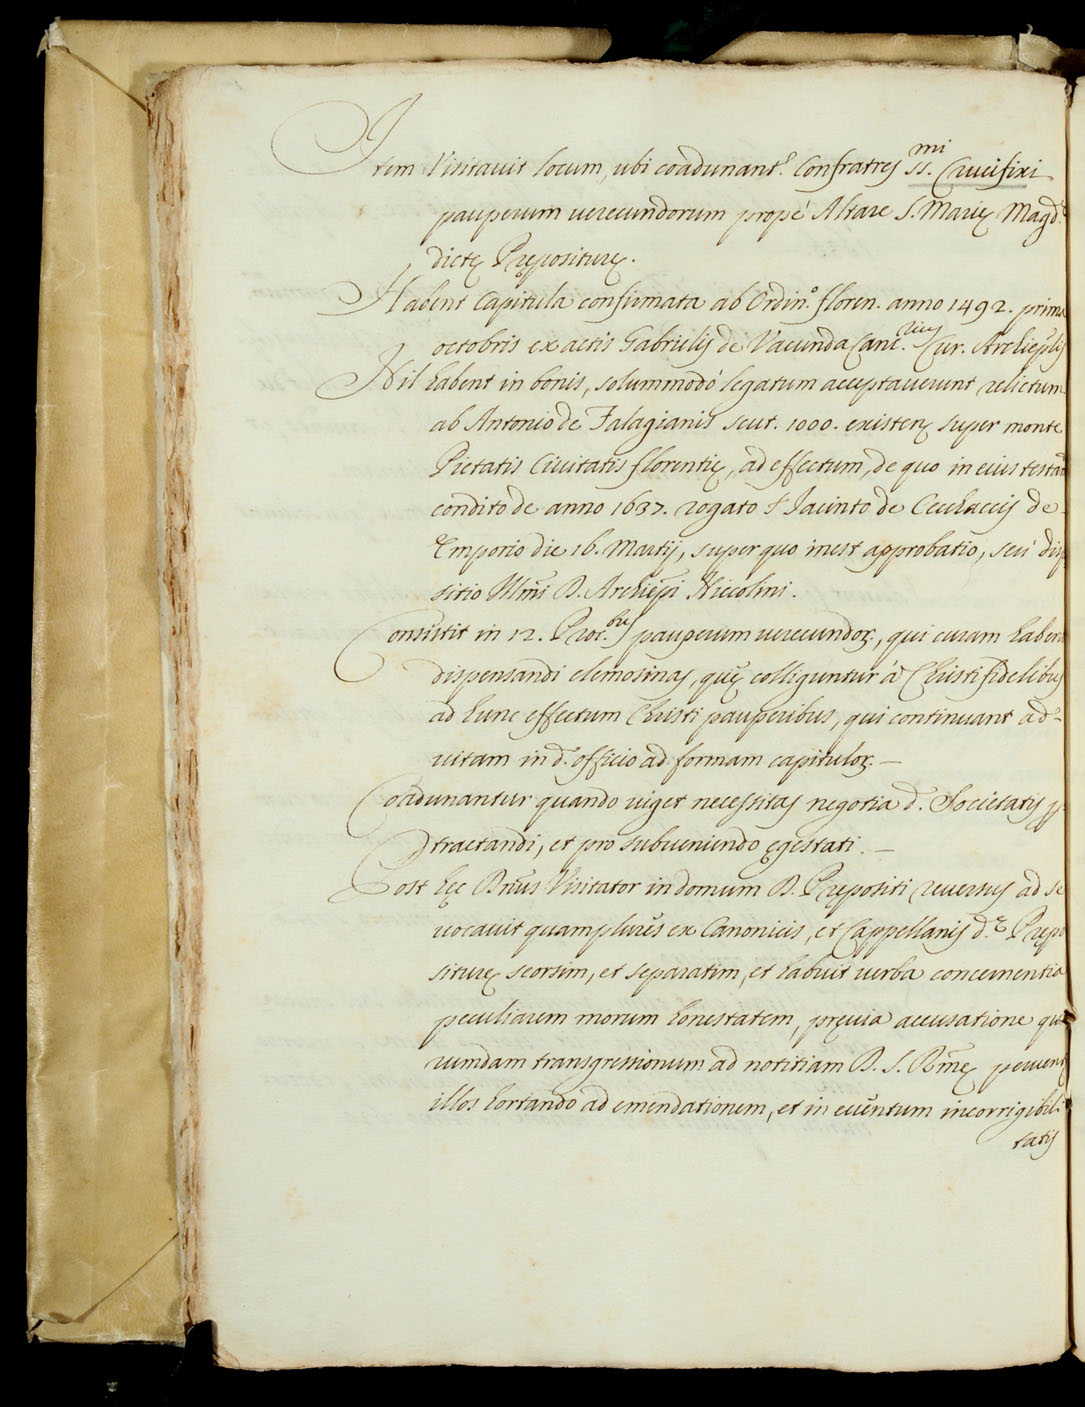 Item Visitavit locum, ubi coadunant.r Confratres SS.mi Crucifixi
pauperum verecundorum propé Altare S. Marię Magd.
dictę Pręposituręę.
Habent Capitula confirmata ab Ordin.o floren. anno 1492. prima
octobris ex actis Gabrielis de Vacunda Canc.rii Cur. Archiep̃lis
Nil habent in bonis, solummodó legatum acceptaverunt relictum
ab Antonio de Falagianis scut. 1000. existen. super monte
Pietatis Civitatis florentię, ad effectum, de quo in eius testam
condito de anno 1637. rogato Jacinto de Cecchaccis de
Emporio die 16. Martij, super quo inest approbatio, seú dispo
sitio Ill̃mi D. Archiep̃i Niccolini.
Consistit in 12. Proc.bus pauperum verecundoꝝ, qui curam habent
dispensandi elemosinas, quę colliguntur á Christi fidelibus
ad hunc effectum Christi pauperibus, qui continuant ad
vitam in d. officio ad formam capituloꝝ.
Coadunantur quando viget necessitas negotia d. Societatis p
tractandi, et pro subveniendo egestati.
Post hęc Rm̃us Visitator in domum D. Prępositi reversus ad se
vocavit quamplures ex Canonicis, et Cappellanis d.ę Prępo
siturę seorsim, et separatim, et habuit verba concernentia
peculiarem morum honestatem, pręvia accusatione quo
rumdam transgressionum ad notitiam D. S. Rm̃ę pervent
illos hortando ad emendationem, et in eventum incorrigibili
tatis